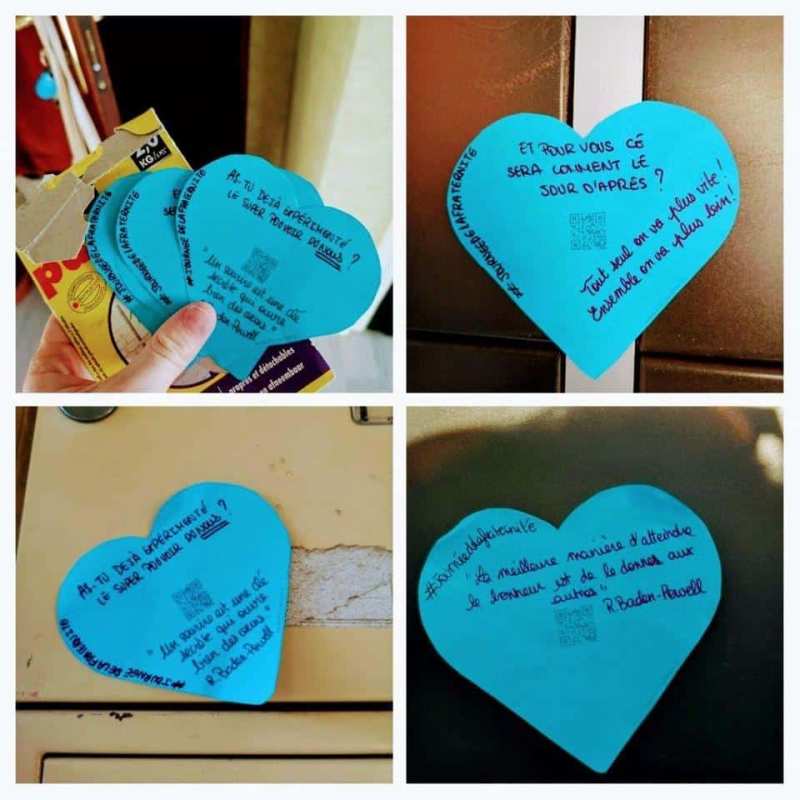 2,0
KG/
#JOURNEEDELAFRATERNITE
#JOURNEEDELAFRATERNITE
AS-TU DEJÀ EXPÉRIMENTÉ
LE SUPER POUVOIR DU NOUS ?
"Un sourire est une clé
secrète qui ouvre
bien des cœurs"
den-Powell
propres et détachables
ET POUR VOUS CÉ
SERA COMMENT LE
JOUR D'APRÈS ?
#JOURNEEDELAFRATERNITÉ
Tout seul on va plus vite !
Ensemble on va plus loin !
AS-TU DEJÀ EXPÉRIMENTÉ
LE SUPER POUVOIR DU NOUS ?
"Un sourire est une clé
secrète qui ouvre
bien des cœurs"
R. Baden-Powell
#JOURNEE DE LA FRATERNITÉ
#Journéedelafraternité
"La meilleure manière d'atteindre
le bonheur est de le donner aux
autres"
R. Baden-Powell